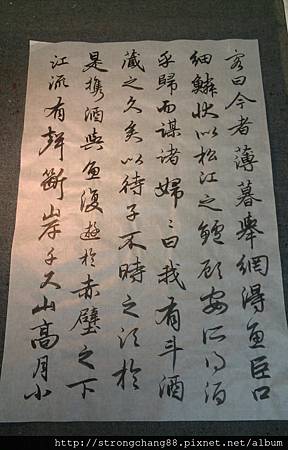 客曰今者薄暮舉網得魚巨口
細鱗狀似松江之鱸顧安所得酒
乎歸而謀諸婦〻曰我有斗酒
藏之久矣以待子不時之須於
是攜酒與魚復遊於赤壁之下
江流有聲斷岸千尺山高月小
http://strongchang88.pixnet.net/album